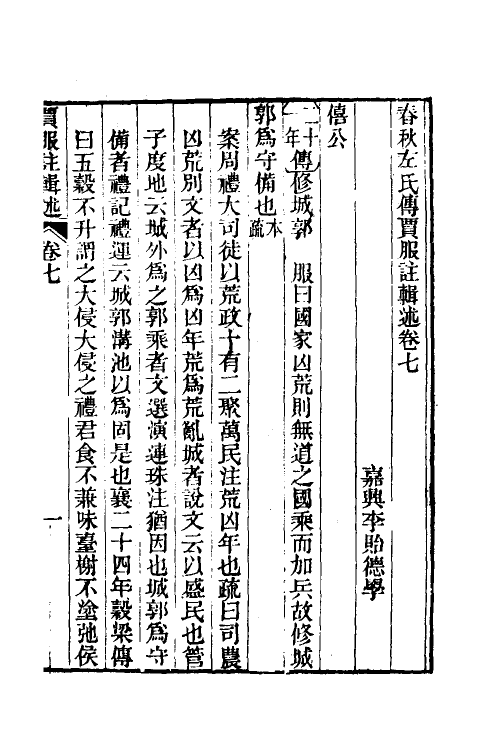 春秋左氏傳賈服註輯述卷七
嘉興李貽德學
僖公
二十一年傳修城郭 服曰國家凶荒則無道之國乘而加兵故修城
郭爲守備也本疏
案周禮大司徒以荒政十有二聚萬民注荒凶年也疏曰司農
凶荒別文者以凶爲凶年荒爲荒亂城者說文云以盛民也管
子度地云城外爲之郭乘者文選演連珠注猶因也城郭爲守
備者禮記禮運云城郭溝池以爲固是也襄二十四年穀梁傳
曰五穀不升謂之大侵大侵之禮君食不兼味臺榭不塗弛侯
賈服註輯述 卷七 一